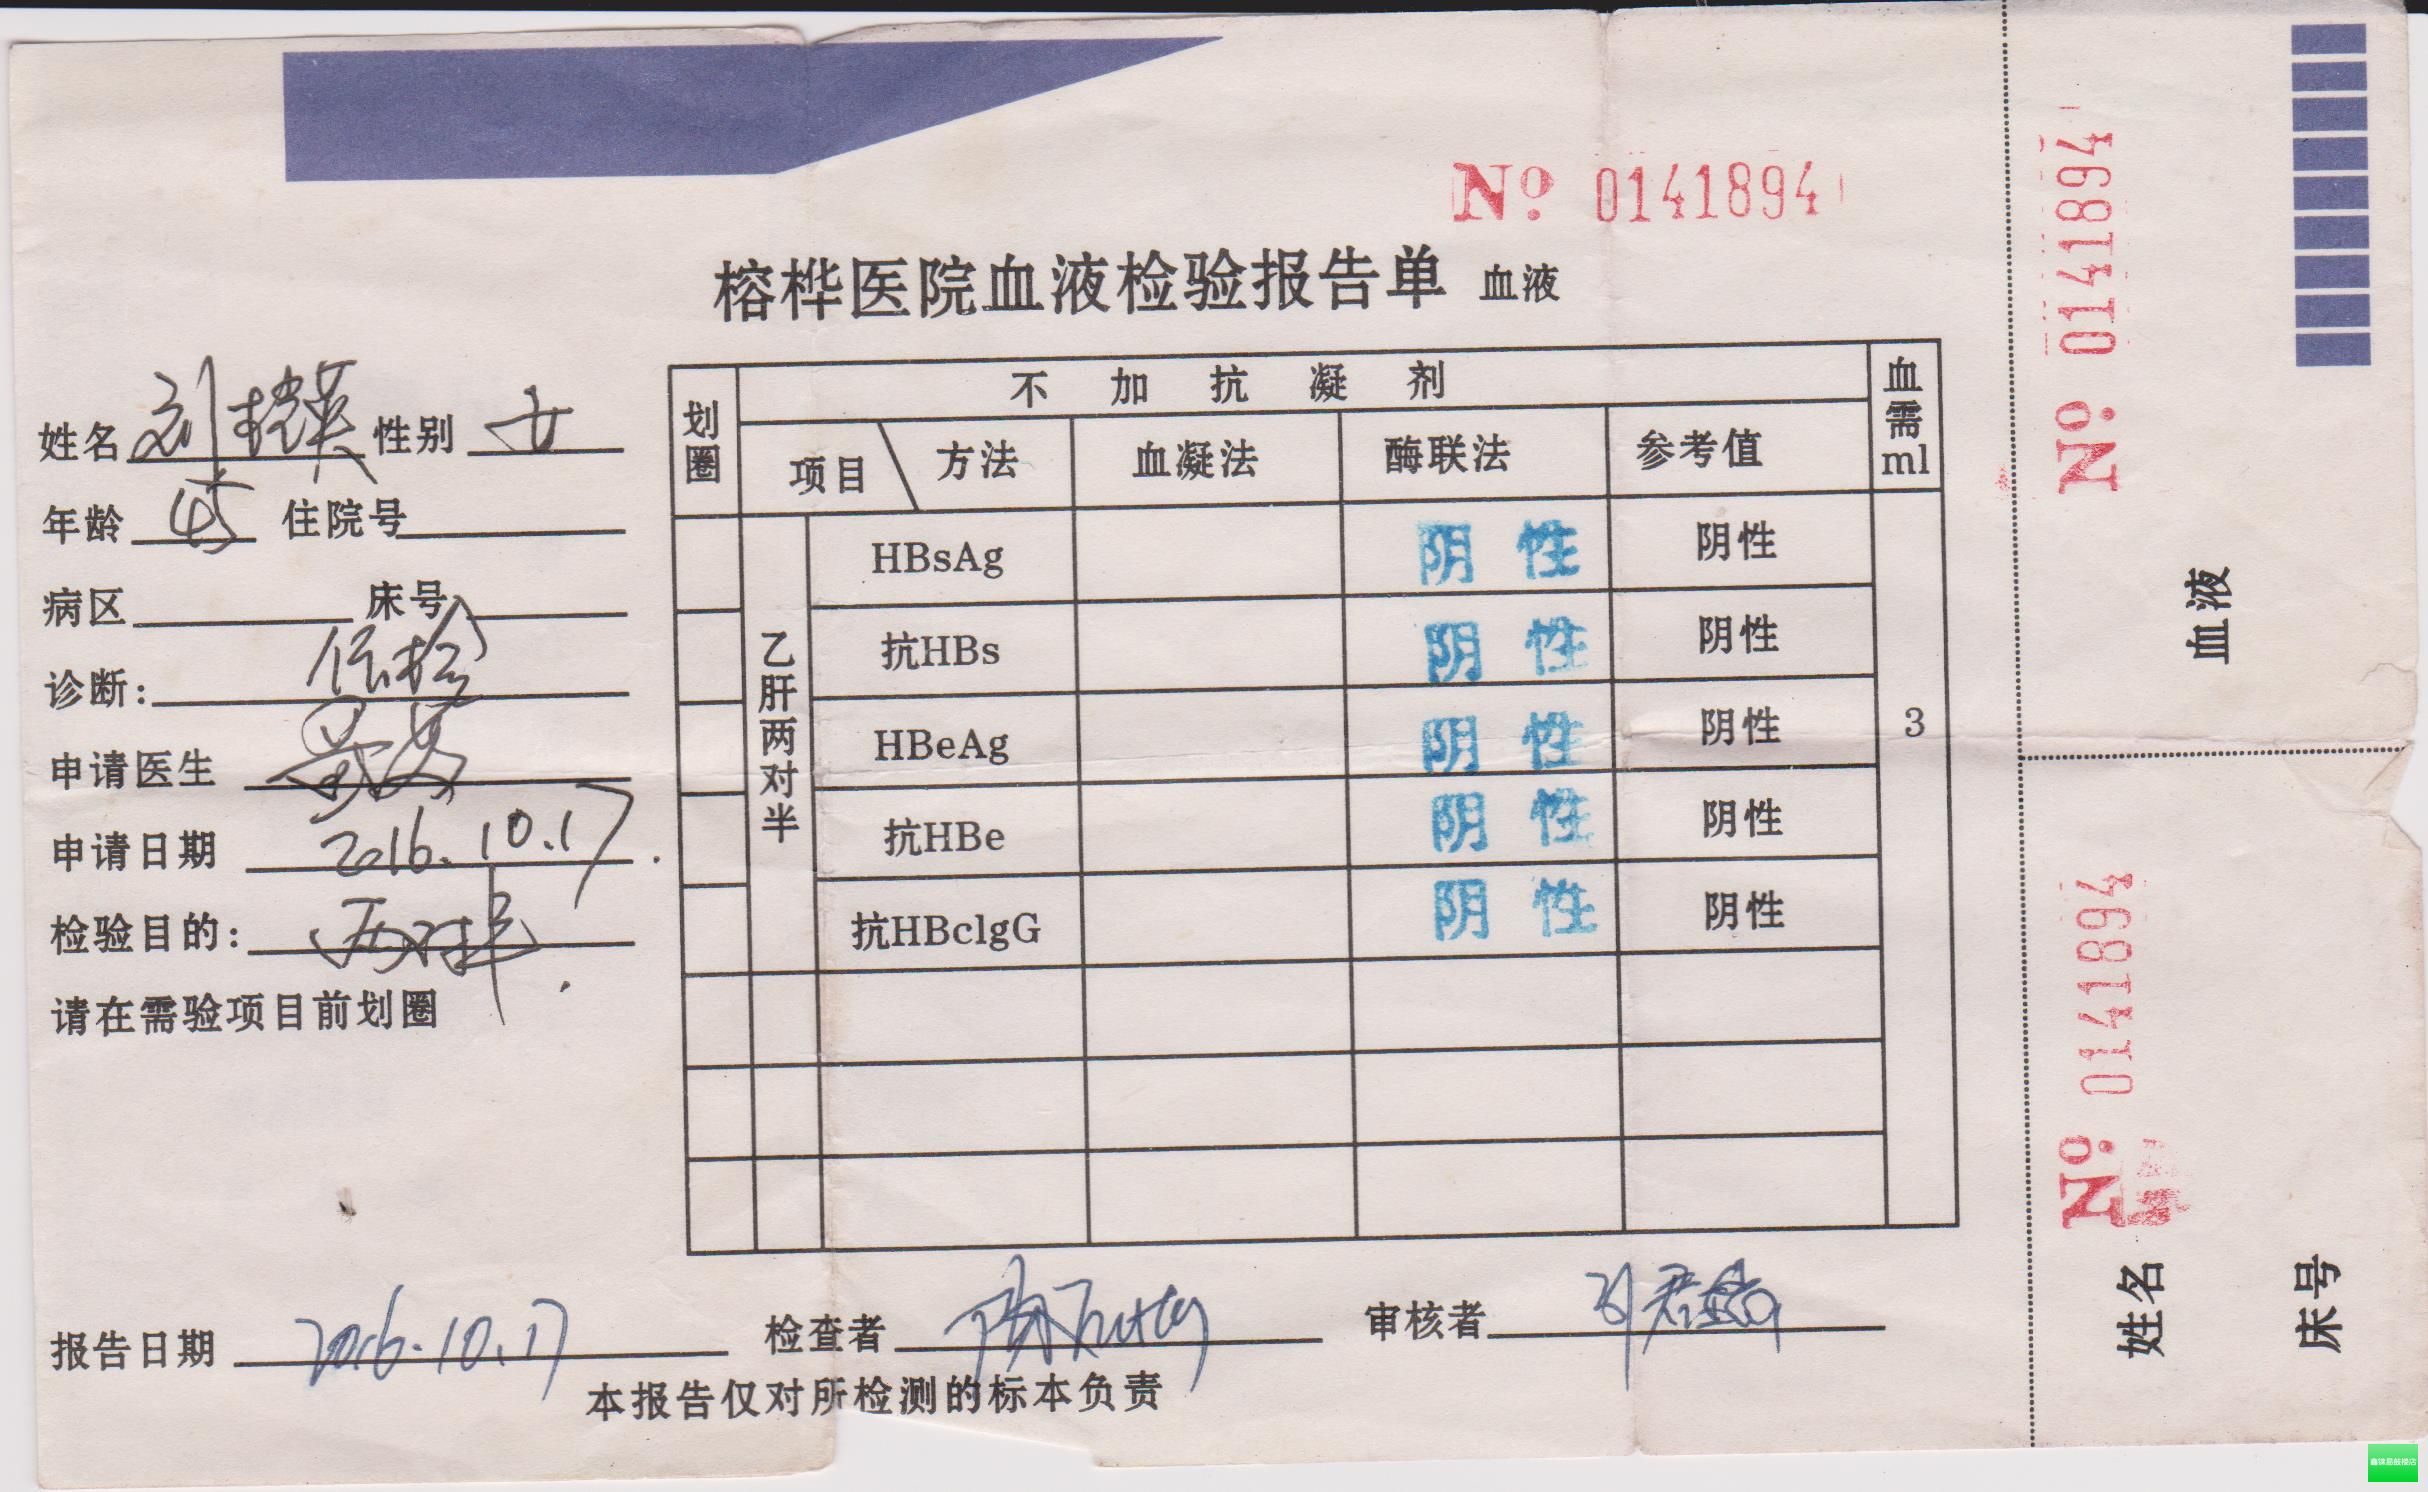 № 0141894
榕桦医院血液检验报告单 血液
姓名 刘 英 性别 女
年龄 45 住院号
病区 床号
诊断: 体检
申请医生
申请日期 2016.10.17.
检验目的: 两对半.
请在需验项目前划圈
划圈 不加抗凝剂 血需ml
项目 方法 血凝法 酶联法 参考值
乙肝两对半
HBsAg 阴性 阴性
抗HBs 阴性 阴性
HBeAg 阴性 阴性 3
抗HBe 阴性 阴性
抗HBclgG 阴性 阴性
报告日期 2016.10.17 检查者 审核者
本报告仅对所检测的标本负责
№ 0141894
血液
№ 0141894
姓名
床号
鑫铼易鼓楼店